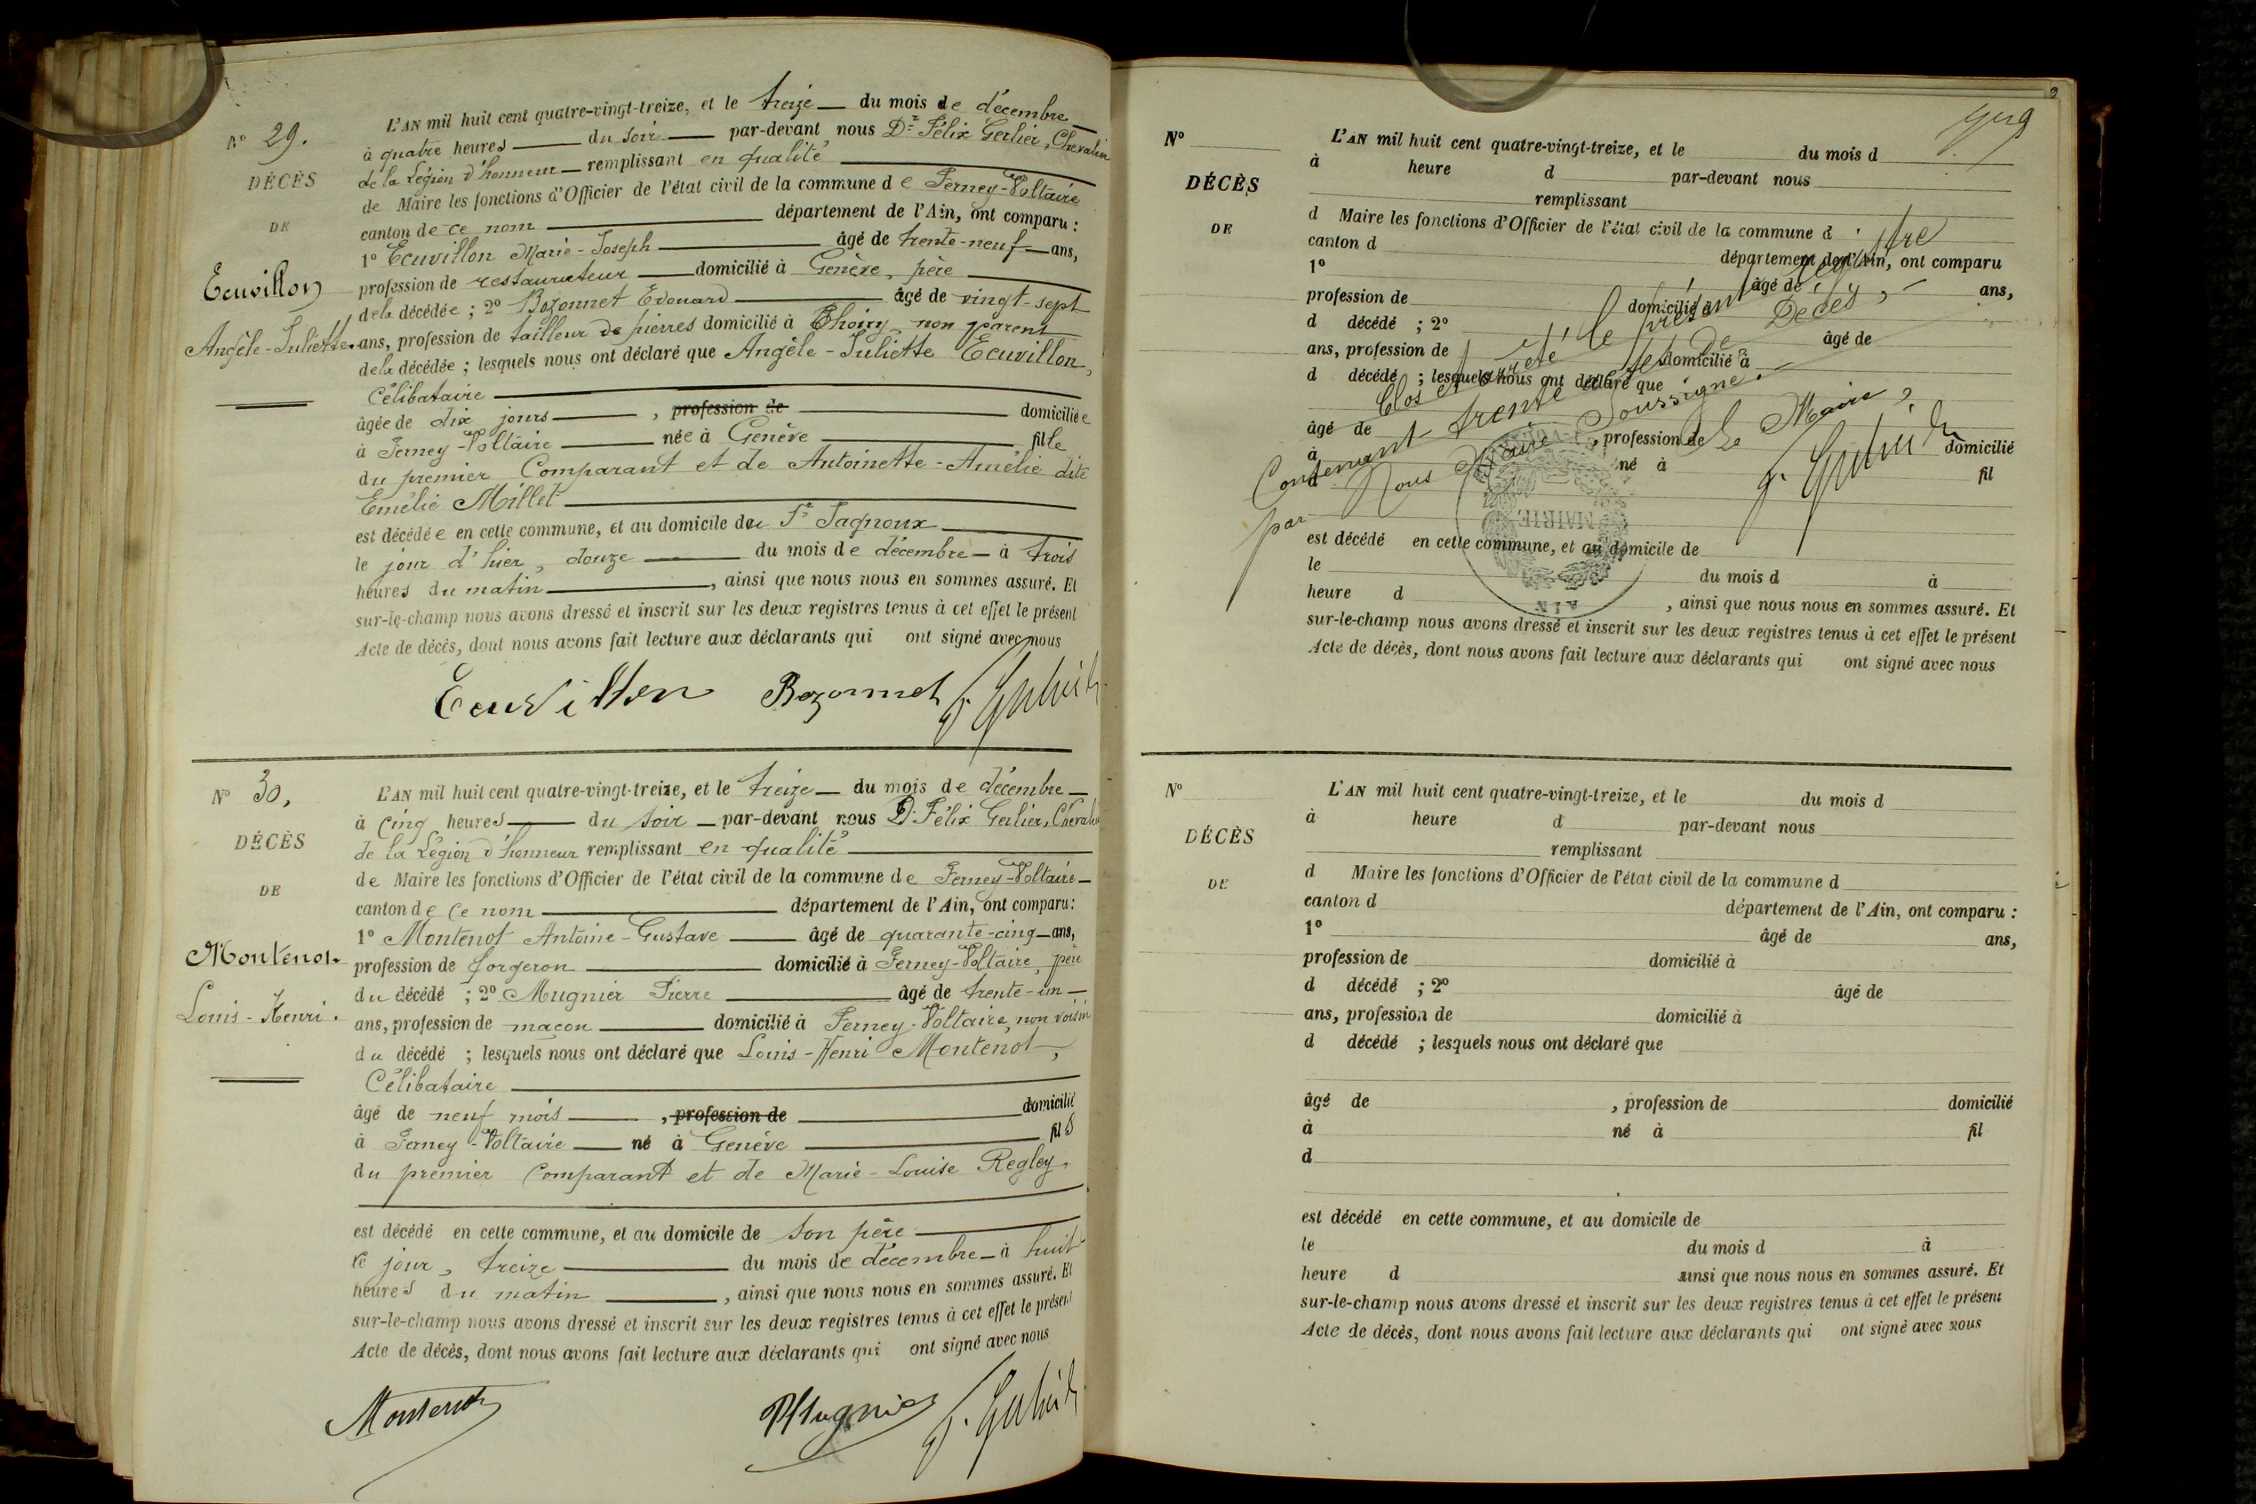 N° 29.
DÉCÈS
DE
Ecuvillon
Angèle-Juliette.
L'AN mil huit cent quatre-vingt-treize, et le treize du mois de décembre
à quatre heures du soir par-devant nous Dr Félix Gerlier, Chevalier
de la Légion d'honneur remplissant en qualité
de Maire les fonctions d'Officier de l'état civil de la commune de Ferney-Voltaire
canton de ce nom département de l'Ain, ont comparu :
1° Ecuvillon Marie-Joseph âgé de trente-neuf ans,
profession de restaurateur domicilié à Genève, père
de la décédée ; 2° Bozonnet Edouard âgé de vingt-sept
ans, profession de tailleur de pierres domicilié à Thoiry non parent
de la décédée ; lesquels nous ont déclaré que Angèle-Juliette Ecuvillon,
Célibataire
âgée de dix jours , profession de domiciliée
à Ferney-Voltaire née à Genève fille
du premier Comparant et de Antoinette-Amélie dite
Emélie Millet
est décédée en cette commune, et au domicile du Sr Jagnoux
le jour d'hier, douze du mois de décembre à trois
heures du matin , ainsi que nous nous en sommes assuré. Et
sur-le-champ nous avons dressé et inscrit sur les deux registres tenus à cet effet le présent
Acte de décès, dont nous avons fait lecture aux déclarants qui ont signé avec nous
Ecuvillon Bozonnet
N° 30,
DÉCÈS
DE
Montenot
Louis-Henri.
L'AN mil huit cent quatre-vingt-treize, et le treize du mois de décembre
à cinq heures du soir par-devant nous Dr Félix Gerlier, Chevalier
de la Légion d'honneur remplissant en qualité
de Maire les fonctions d'Officier de l'état civil de la commune de Ferney-Voltaire
canton de ce nom département de l'Ain, ont comparu :
1° Montenot Antoine-Gustave âgé de quarante-cinq ans,
profession de forgeron domicilié à Ferney-Voltaire, père
du décédé ; 2° Mugnier Pierre âgé de trente-un
ans, profession de maçon domicilié à Ferney-Voltaire, non voisin
du décédé ; lesquels nous ont déclaré que Louis-Henri Montenot,
Célibataire
âgé de neuf mois , profession de domicilié
à Ferney-Voltaire né à Genève fils
du premier Comparant et de Marie-Louise Regley,
est décédé en cette commune, et au domicile de son père
le jour, treize du mois de décembre à huit
heures du matin , ainsi que nous nous en sommes assuré. Et
sur-le-champ nous avons dressé et inscrit sur les deux registres tenus à cet effet le présent
Acte de décès, dont nous avons fait lecture aux déclarants qui ont signé avec nous
Montenot Mugnier
N°
DÉCÈS
DE
L'AN mil huit cent quatre-vingt-treize, et le du mois d
à heure d par-devant nous
remplissant
d Maire les fonctions d'Officier de l'état civil de la commune d
canton d département de l'Ain, ont comparu
1° âgé de ans,
profession de domicilié à
d décédé ; 2° âgé de
ans, profession de domicilié à
d décédé ; lesquels nous ont déclaré que
âgé de , profession de domicilié
à né à fil
d
est décédé en cette commune, et au domicile de
le du mois d à
heure d , ainsi que nous nous en sommes assuré. Et
sur-le-champ nous avons dressé et inscrit sur les deux registres tenus à cet effet le présent
Acte de décès, dont nous avons fait lecture aux déclarants qui ont signé avec nous
Clos et arrêté le présent registre
Contenant trente actes de Décès,
par Nous Maire Soussigné.
Le Maire,
MAIRIE
AIN
N°
DÉCÈS
DE
L'AN mil huit cent quatre-vingt-treize, et le du mois d
à heure d par-devant nous
remplissant
d Maire les fonctions d'Officier de l'état civil de la commune d
canton d département de l'Ain, ont comparu :
1° âgé de ans,
profession de domicilié à
d décédé ; 2° âgé de
ans, profession de domicilié à
d décédé ; lesquels nous ont déclaré que
âgé de , profession de domicilié
à né à fil
d
est décédé en cette commune, et au domicile de
le du mois d à
heure d ainsi que nous nous en sommes assuré. Et
sur-le-champ nous avons dressé et inscrit sur les deux registres tenus à cet effet le présent
Acte de décès, dont nous avons fait lecture aux déclarants qui ont signé avec nous